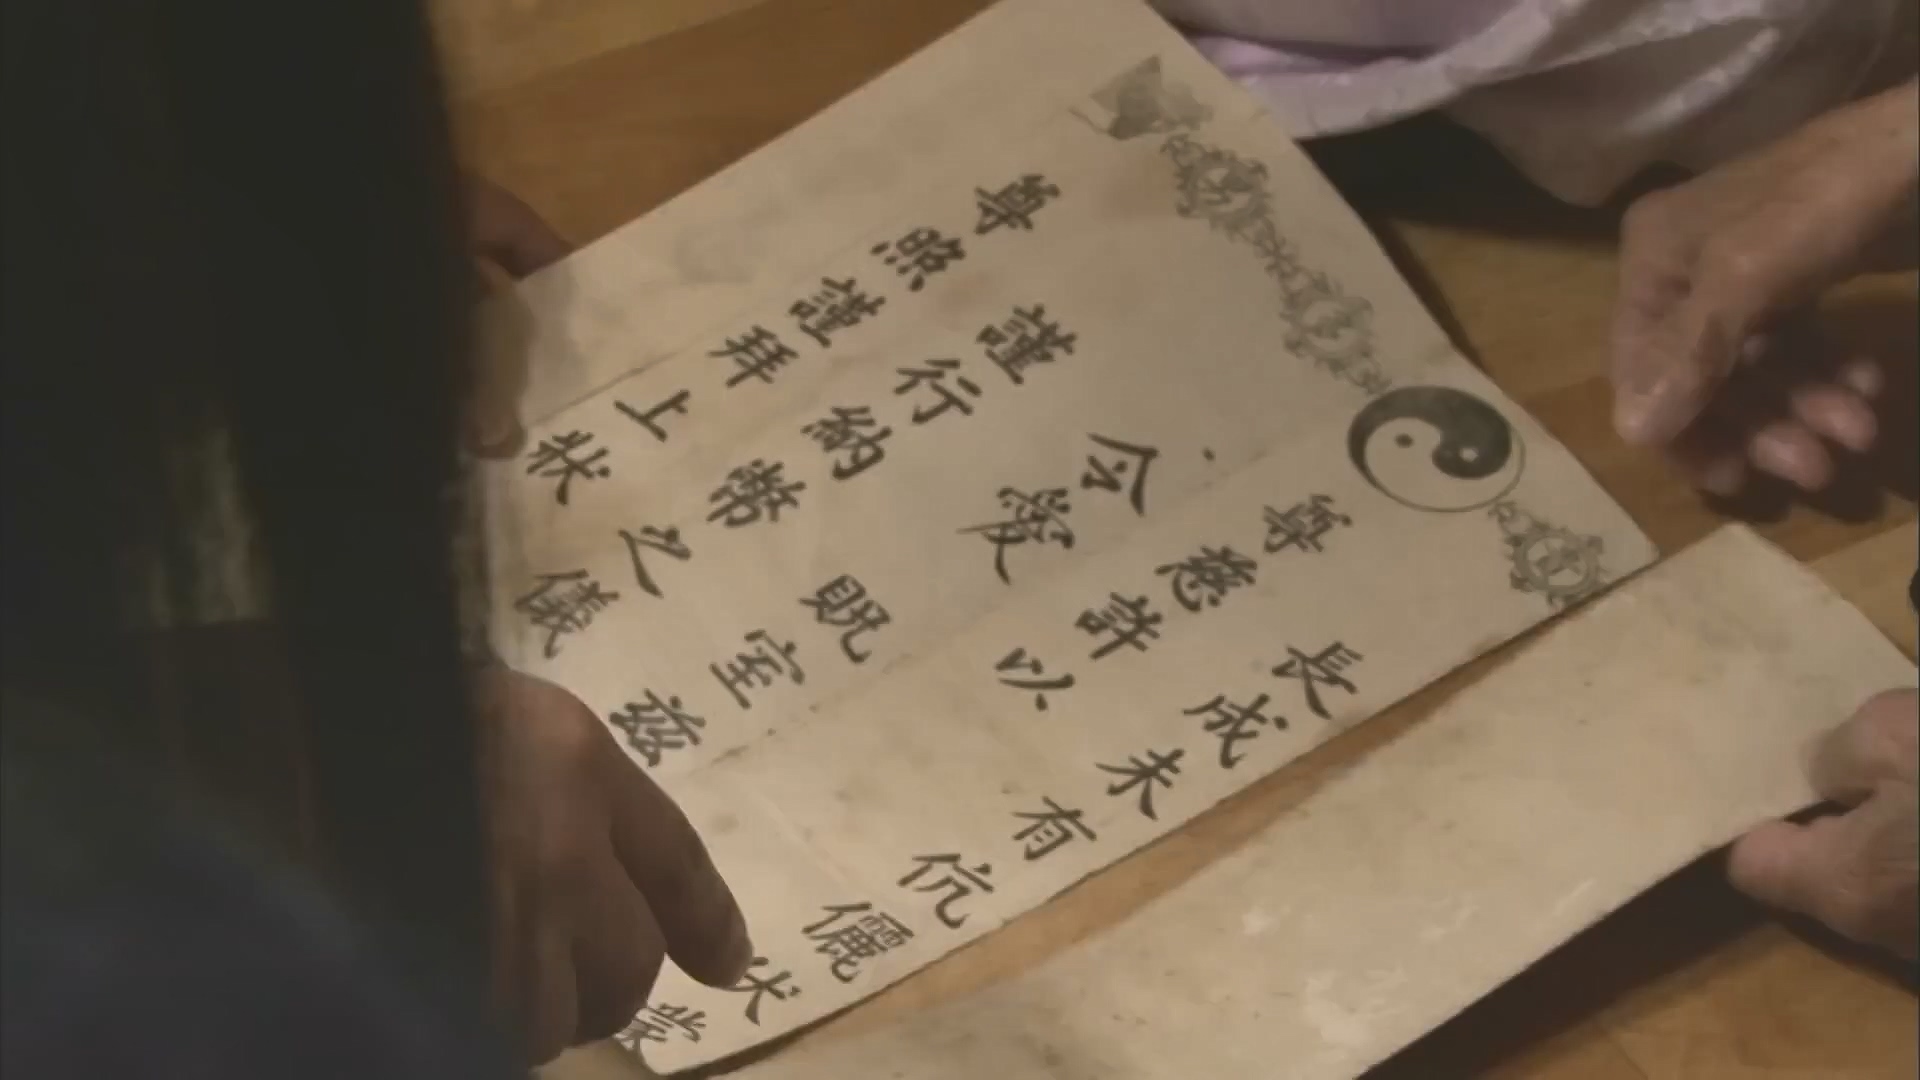 長成未有伉儷伏蒙
尊慈許以
令愛貺室茲
謹行納幣之儀
尊照謹拜上狀